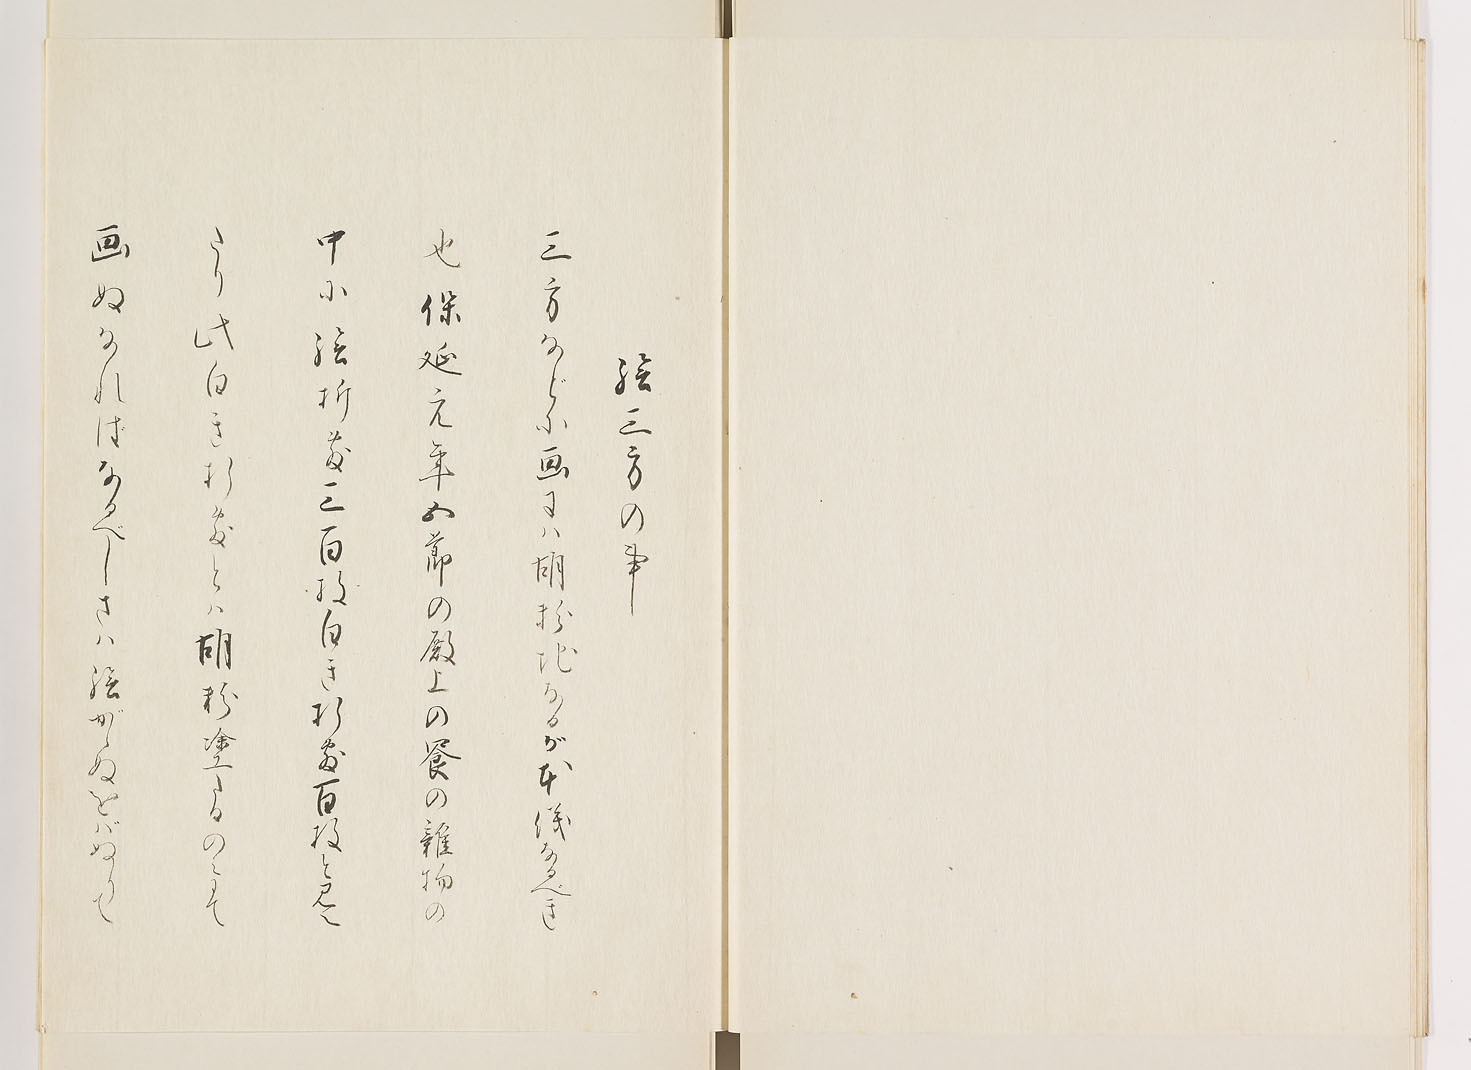 絵三方の事
三方などに画には胡粉地なるが本儀なるべき
也保延元年五節の殿上の饗の雑物の
中に絵折敷三百枚白き折敷百枚と見え
たり此白き折敷とは胡粉塗たるのみにて
画ぬなればなるべしさは絵がゝぬをばぬりて